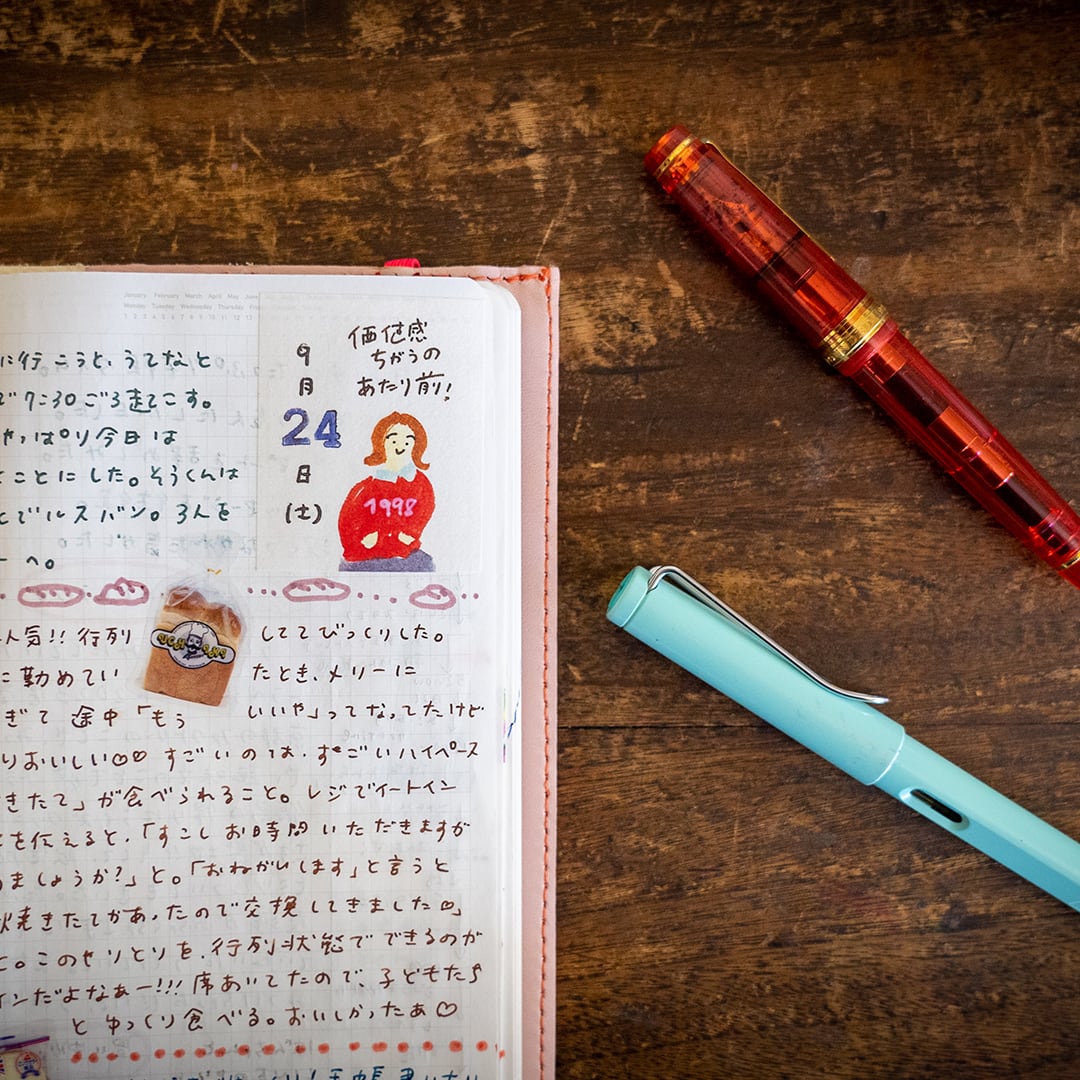 January February March April May June
Monday Tuesday Wednesday Thursday
1 2 3 4 5 6 7 8 9 10 11 12 13
9
月
24
日
(土)
価値感
ちがうの
あたり前!
1998
に行こうと、うてなと
で7:30ごろ走てこす。
やっぱり今日は
ことにした。そうくんは
とでルスバン。3人を
ーへ。
人気!! 行列 してて びっくりした。
に勤めてい たとき、メリーに
ぎて 途中「もう いいや」ってなってたけど
りおいしい♡♡ すごいのは、すごいハイペース
きたて」が食べられること。レジでイートイン
を伝えると、「すこし お時間 いただきますが
ましょうか?」と。「おねがいします」と言うと
焼きたてがあったので交換してきました♡」
と。このやりとりを、行列状態でできるのが
インだよなぁー!!! 席あいてたので、子どもたち
と ゆっくり食べる。おいしかったぁ♡